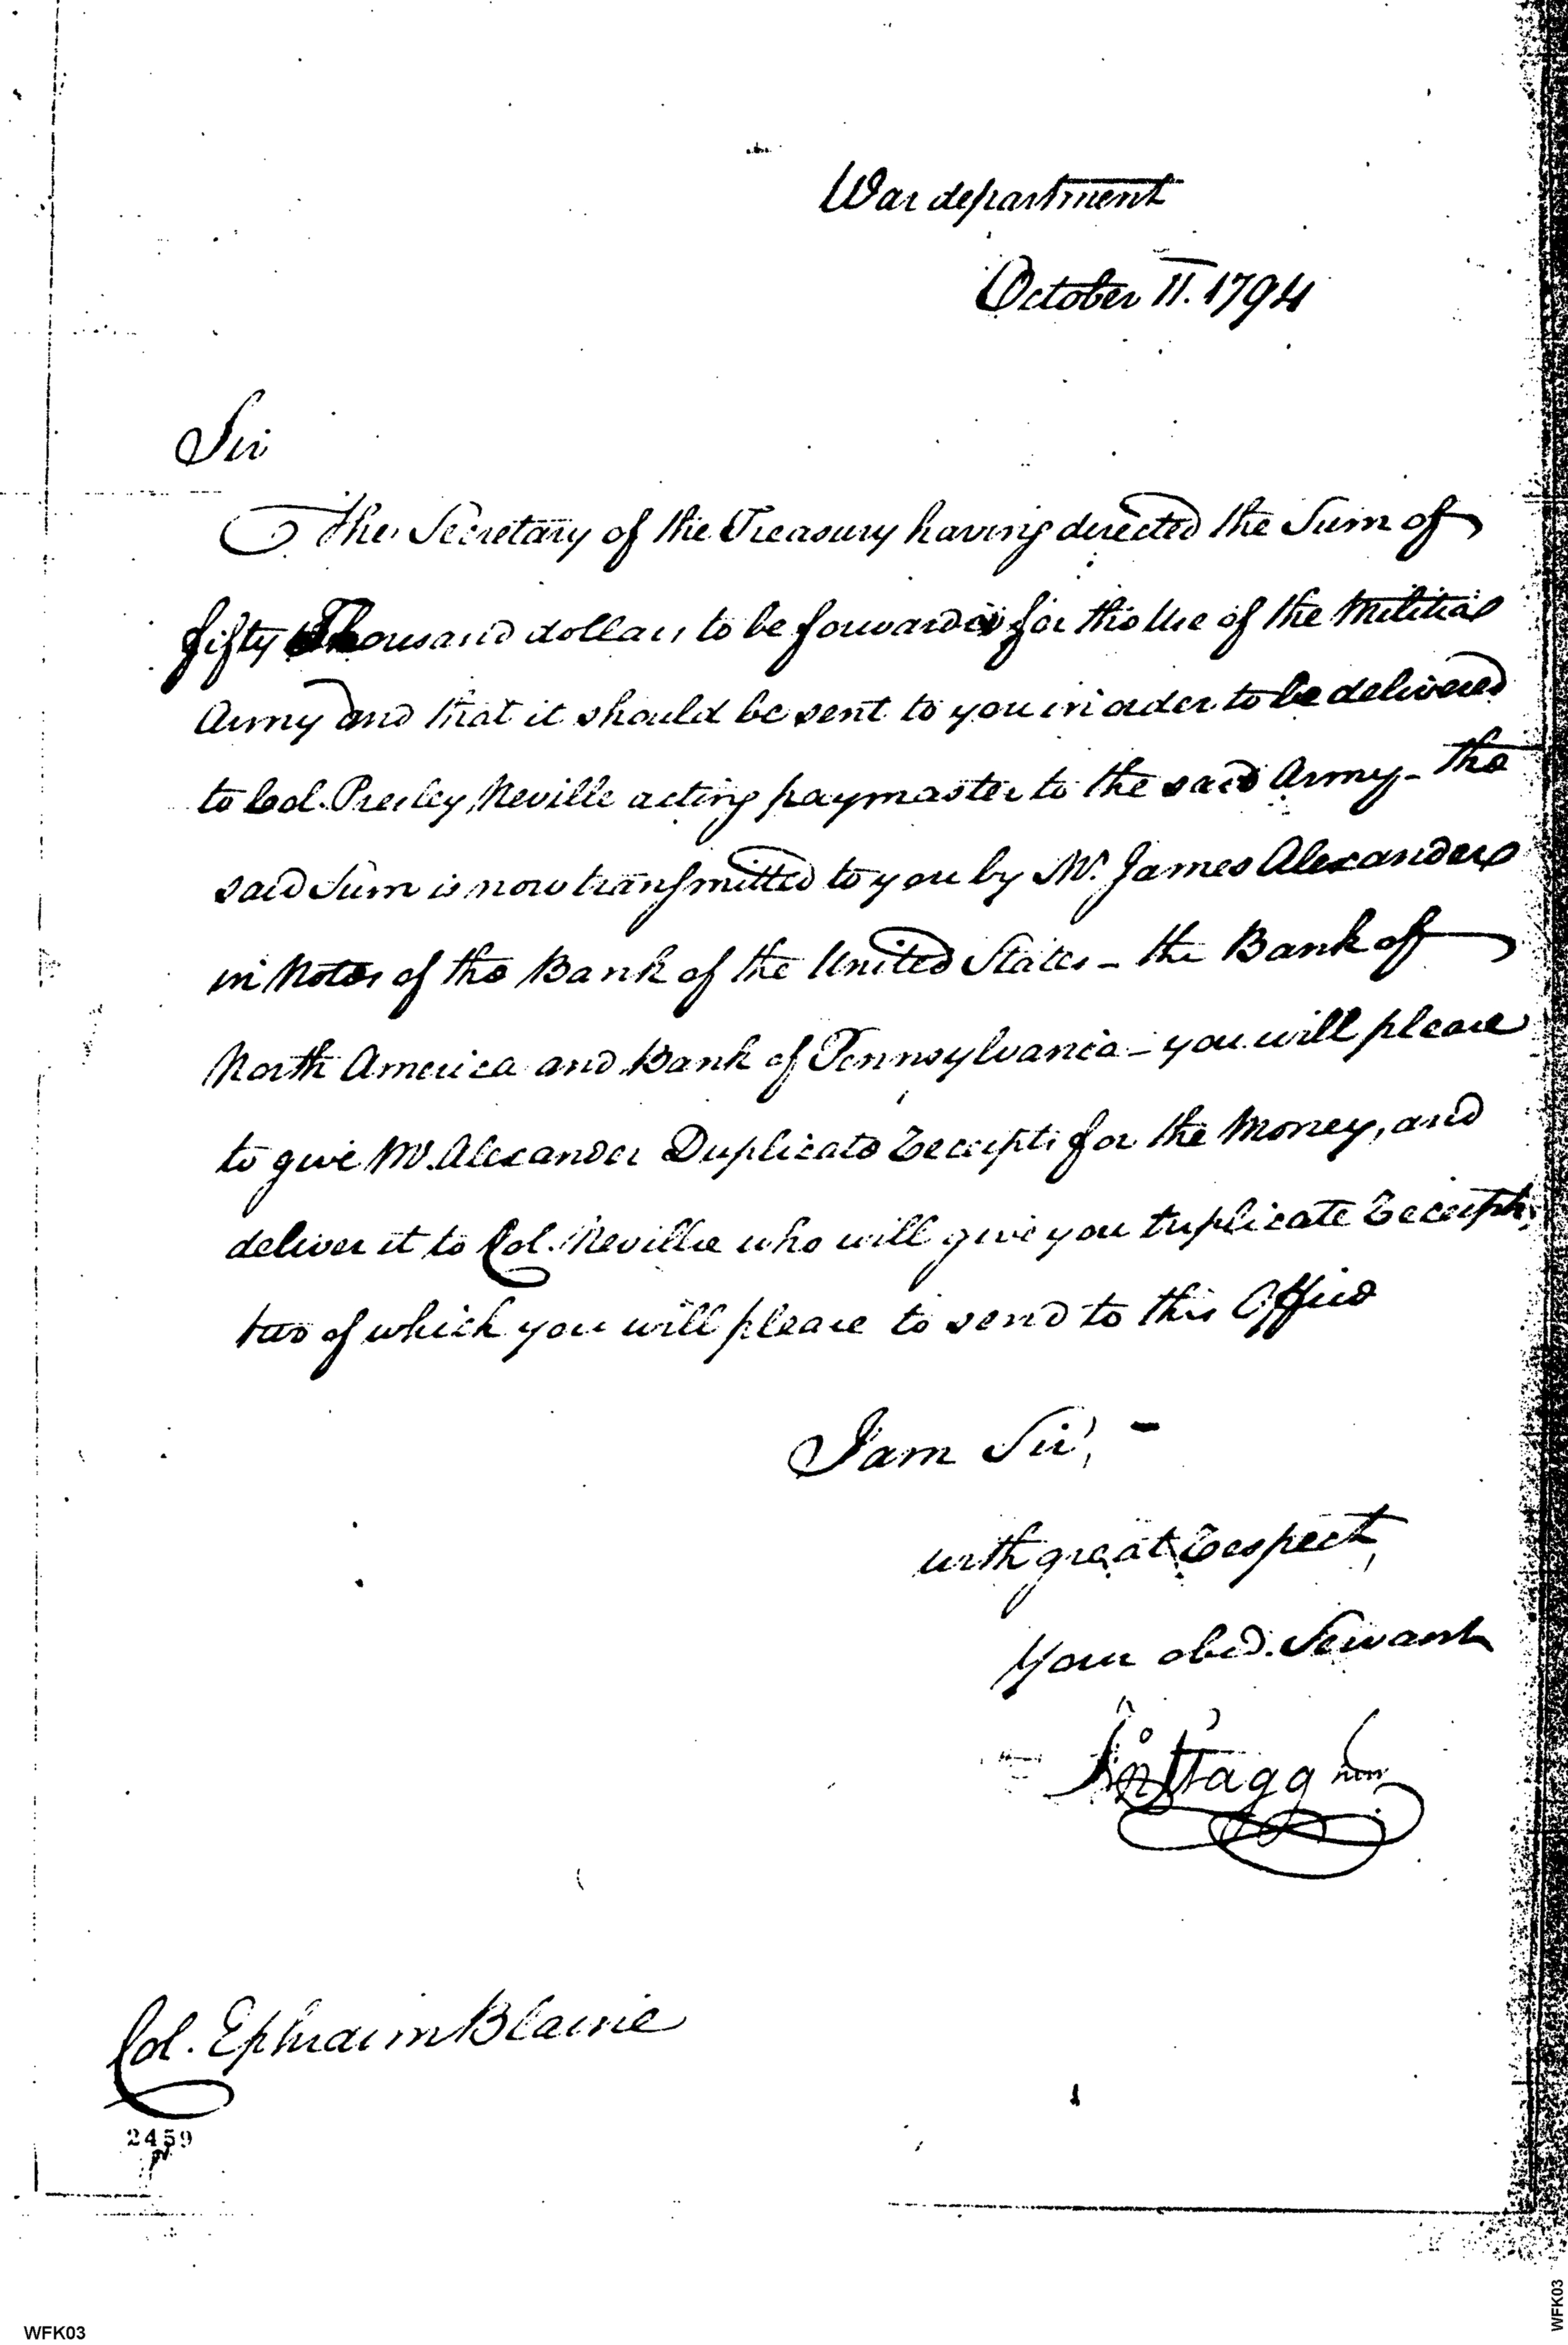 War department
October 11. 1794
Sir
The Secretary of the Treasury having directed the Sum of
fifty Thousand dollars to be forwarded for the Use of the Militia
Army and that it should be sent to you in order to be delivered
to Col. Presley Neville acting paymaster to the said Army - the
said Sum is now transmitted to you by Mr. James Alexander
in Notes of the Bank of the United States - the Bank of
North America and Bank of Pennsylvania - you will please
to give Mr. Alexander Duplicate Receipts for the Money, and
deliver it to Col. Neville who will give you triplicate Receipts,
two of which you will please to send to this Office
I am Sir, -
with great Respect,
Your obed. Servant
Jno Stagg Junr.
Col. Ephraim Blaine
2459
WFK03
WFK03